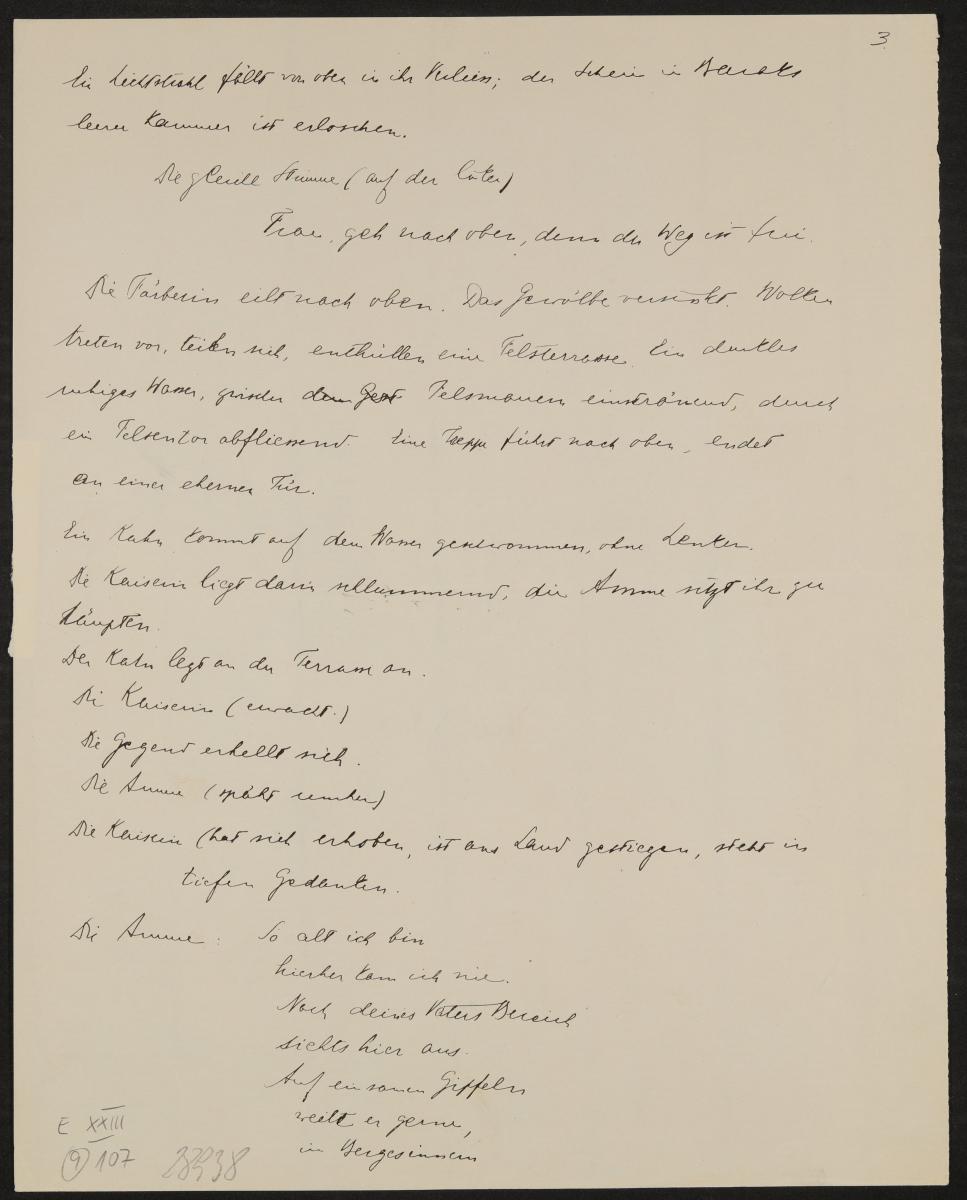 3.
Ein Lichtstrahl fällt von oben in ihr Verliess; der Schein in Baraks
leerer Kammer ist erloschen.
Die gleiche Stimme (auf der
Frau, geh nach oben, denn der Weg ist frei.
Die Färberin eilt nach oben. Das Gewölbe versinkt. Wolken
treten vor, teilen sich, enthüllen eine Felsterrasse. Ein dunkles
ruhiges Wasser, zwischen Felsmauern einströmend, durch
ein Felsentor abfliessend. Eine Treppe führt nach oben, endet
an einer ehernen Tür.
Ein Kahn kommt auf dem Wasser geschwommen, ohne Lenker.
Die Kaiserin liegt darin schlummernd, die Amme sitzt ihr zu
Häupten.
Der Kahn legt an der Terrasse an.
Die Kaiserin (erwacht.)
Die Gegend erhellt sich.
Die Amme (späht umher)
Die Kaiserin (hat sich erhoben, ist ans Land gestiegen, steht in
tiefen Gedanken.
Die Amme: So alt ich bin
hierher kam ich nie.
Nach deines Vaters Bereich
siehts hier aus.
Auf einsamen Gipfeln
weilt er gerne,
in Bergesinnern
E XXIII
(9) 107